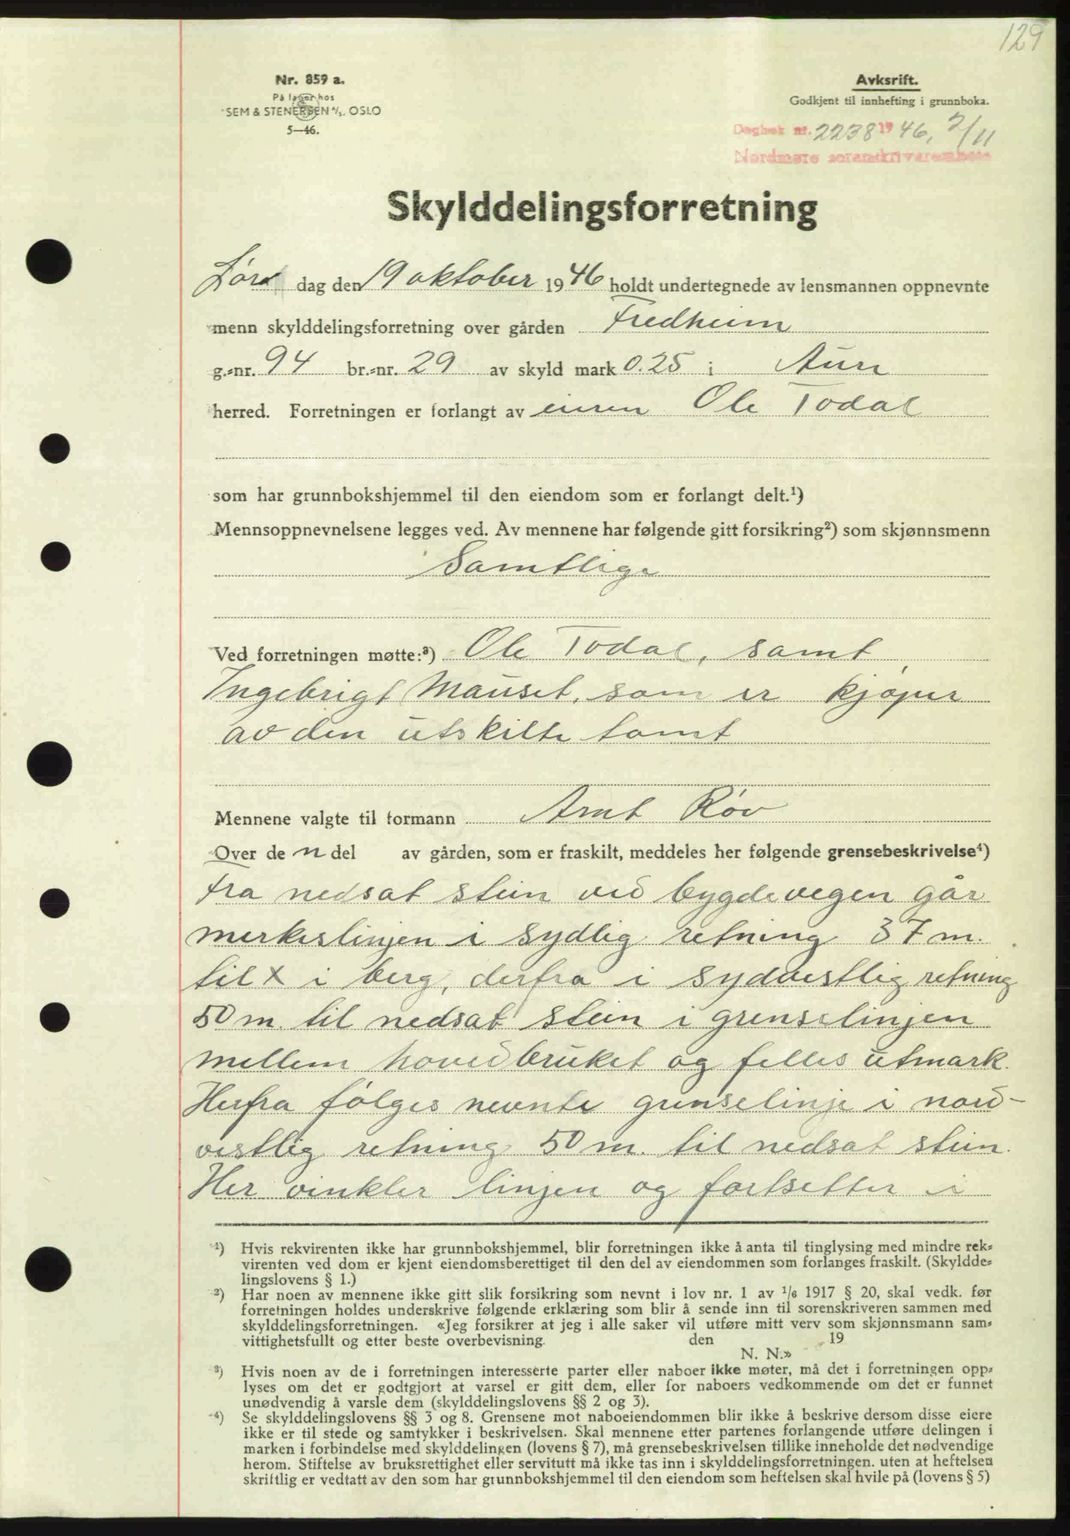 129
Nr. 859 a.
På lager hos
SEM & STENERSEN A/S. OSLO
5—46.
Avskrift.
Godkjent til innhefting i grunnboka.
Dagbok nr. 2238 1946, 2/11
Nordmøre sorenskriverembete
Skylddelingsforretning
Lør dag den 19 oktober 1946 holdt undertegnede av lensmannen oppnevnte
menn skylddelingsforretning over gården Fredheim
g.-nr. 94 br.-nr. 29 av skyld mark 0.25 i Aure
herred. Forretningen er forlangt av eieren Ole Todal
som har grunnbokshjemmel til den eiendom som er forlangt delt.¹)
Mennsoppnevnelsene legges ved. Av mennene har følgende gitt forsikring²) som skjønnsmenn
Samtlige
Ved forretningen møtte:³) Ole Todal, samt
Ingebrigt Mauset, som er kjøper
av den utskilte tomt
Mennene valgte til formann Arnt Røv
Over de n del av gården, som er fraskilt, meddeles her følgende grensebeskrivelse⁴)
Fra nedsat stein ved bygdevegen går
merkeslinjen i sydlig retning 37 m.
til x i berg, derfra i sydvestlig retning
50 m. til nedsat stein i grenselinjen
mellem hovedbruket og felles utmark.
Herfra følges nevnte grenselinje i nord-
vestlig retning 50 m. til nedsat stein.
Her vinkler linjen og fortsetter i
¹) Hvis rekvirenten ikke har grunnbokshjemmel, blir forretningen ikke å anta til tinglysing med mindre rek-
virenten ved dom er kjent eiendomsberettiget til den del av eiendommen som forlanges fraskilt. (Skyldde-
lingslovens § 1.)
²) Har noen av mennene ikke gitt slik forsikring som nevnt i lov nr. 1 av 1/6 1917 § 20, skal vedk. før
forretningen holdes underskrive følgende erklæring som blir å sende inn til sorenskriveren sammen med
skylddelingsforretningen. «Jeg forsikrer at jeg i alle saker vil utføre mitt verv som skjønnsmann sam-
vittighetsfullt og etter beste overbevisning. den 19
N. N.»
³) Hvis noen av de i forretningen interesserte parter eller naboer ikke møter, må det i forretningen opp-
lyses om det er godtgjort at varsel er gitt dem, eller for naboers vedkommende om det er funnet
unødvendig å varsle dem (skylddelingslovens §§ 2 og 3).
⁴) Se skylddelingslovens §§ 3 og 8. Grensene mot naboeiendommen blir ikke å beskrive dersom disse eiere
ikke er til stede og samtykker i beskrivelsen. Skal mennene etter partenes forlangende utføre delingen i
marken i forbindelse med skylddelingen (lovens § 7), må grensebeskrivelsen tillike inneholde det nødvendige
herom. Stiftelse av bruksrettighet eller servitutt må ikke tas inn i skylddelingsforretningen. uten at heftelsen
skriftlig er vedtatt av den som har grunnbokshjemmel til den eiendom som heftelsen skal hvile på (lovens § 5)